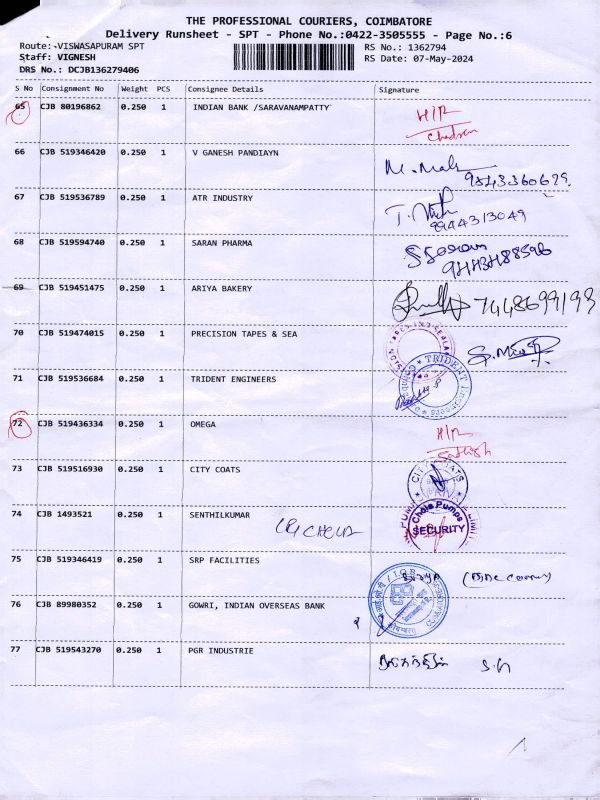 THE PROFESSIONAL COURIERS, COIMBATORE
Delivery Runsheet - SPT - Phone No.:0422-3505555 - Page No.:6
Route: VISWASAPURAM SPT RS No.: 1362794
Staff: VIGNESH RS Date: 07-May-2024
DRS No.: DCJB136279406
S No Consignment No Weight PCS Consignee Details Signature
65 CJB 80196862 0.250 1 INDIAN BANK /SARAVANAMPATTY H/R
66 CJB 519346420 0.250 1 V GANESH PANDIAYN
9843360629
67 CJB 519536789 0.250 1 ATR INDUSTRY
9944313049
68 CJB 519594740 0.250 1 SARAN PHARMA
69 CJB 519451475 0.250 1 ARIYA BAKERY
70 CJB 519474015 0.250 1 PRECISION TAPES & SEA
71 CJB 519536684 0.250 1 TRIDENT ENGINEERS TRIDENT Engineers
72 CJB 519436334 0.250 1 OMEGA H/R
Sathish
73 CJB 519516930 0.250 1 CITY COATS CITY COATS
74 CJB 1493521 0.250 1 SENTHILKUMAR Chola Pumps
SECURITY
75 CJB 519346419 0.250 1 SRP FACILITIES
76 CJB 89980352 0.250 1 GOWRI, INDIAN OVERSEAS BANK
77 CJB 519543270 0.250 1 PGR INDUSTRIE